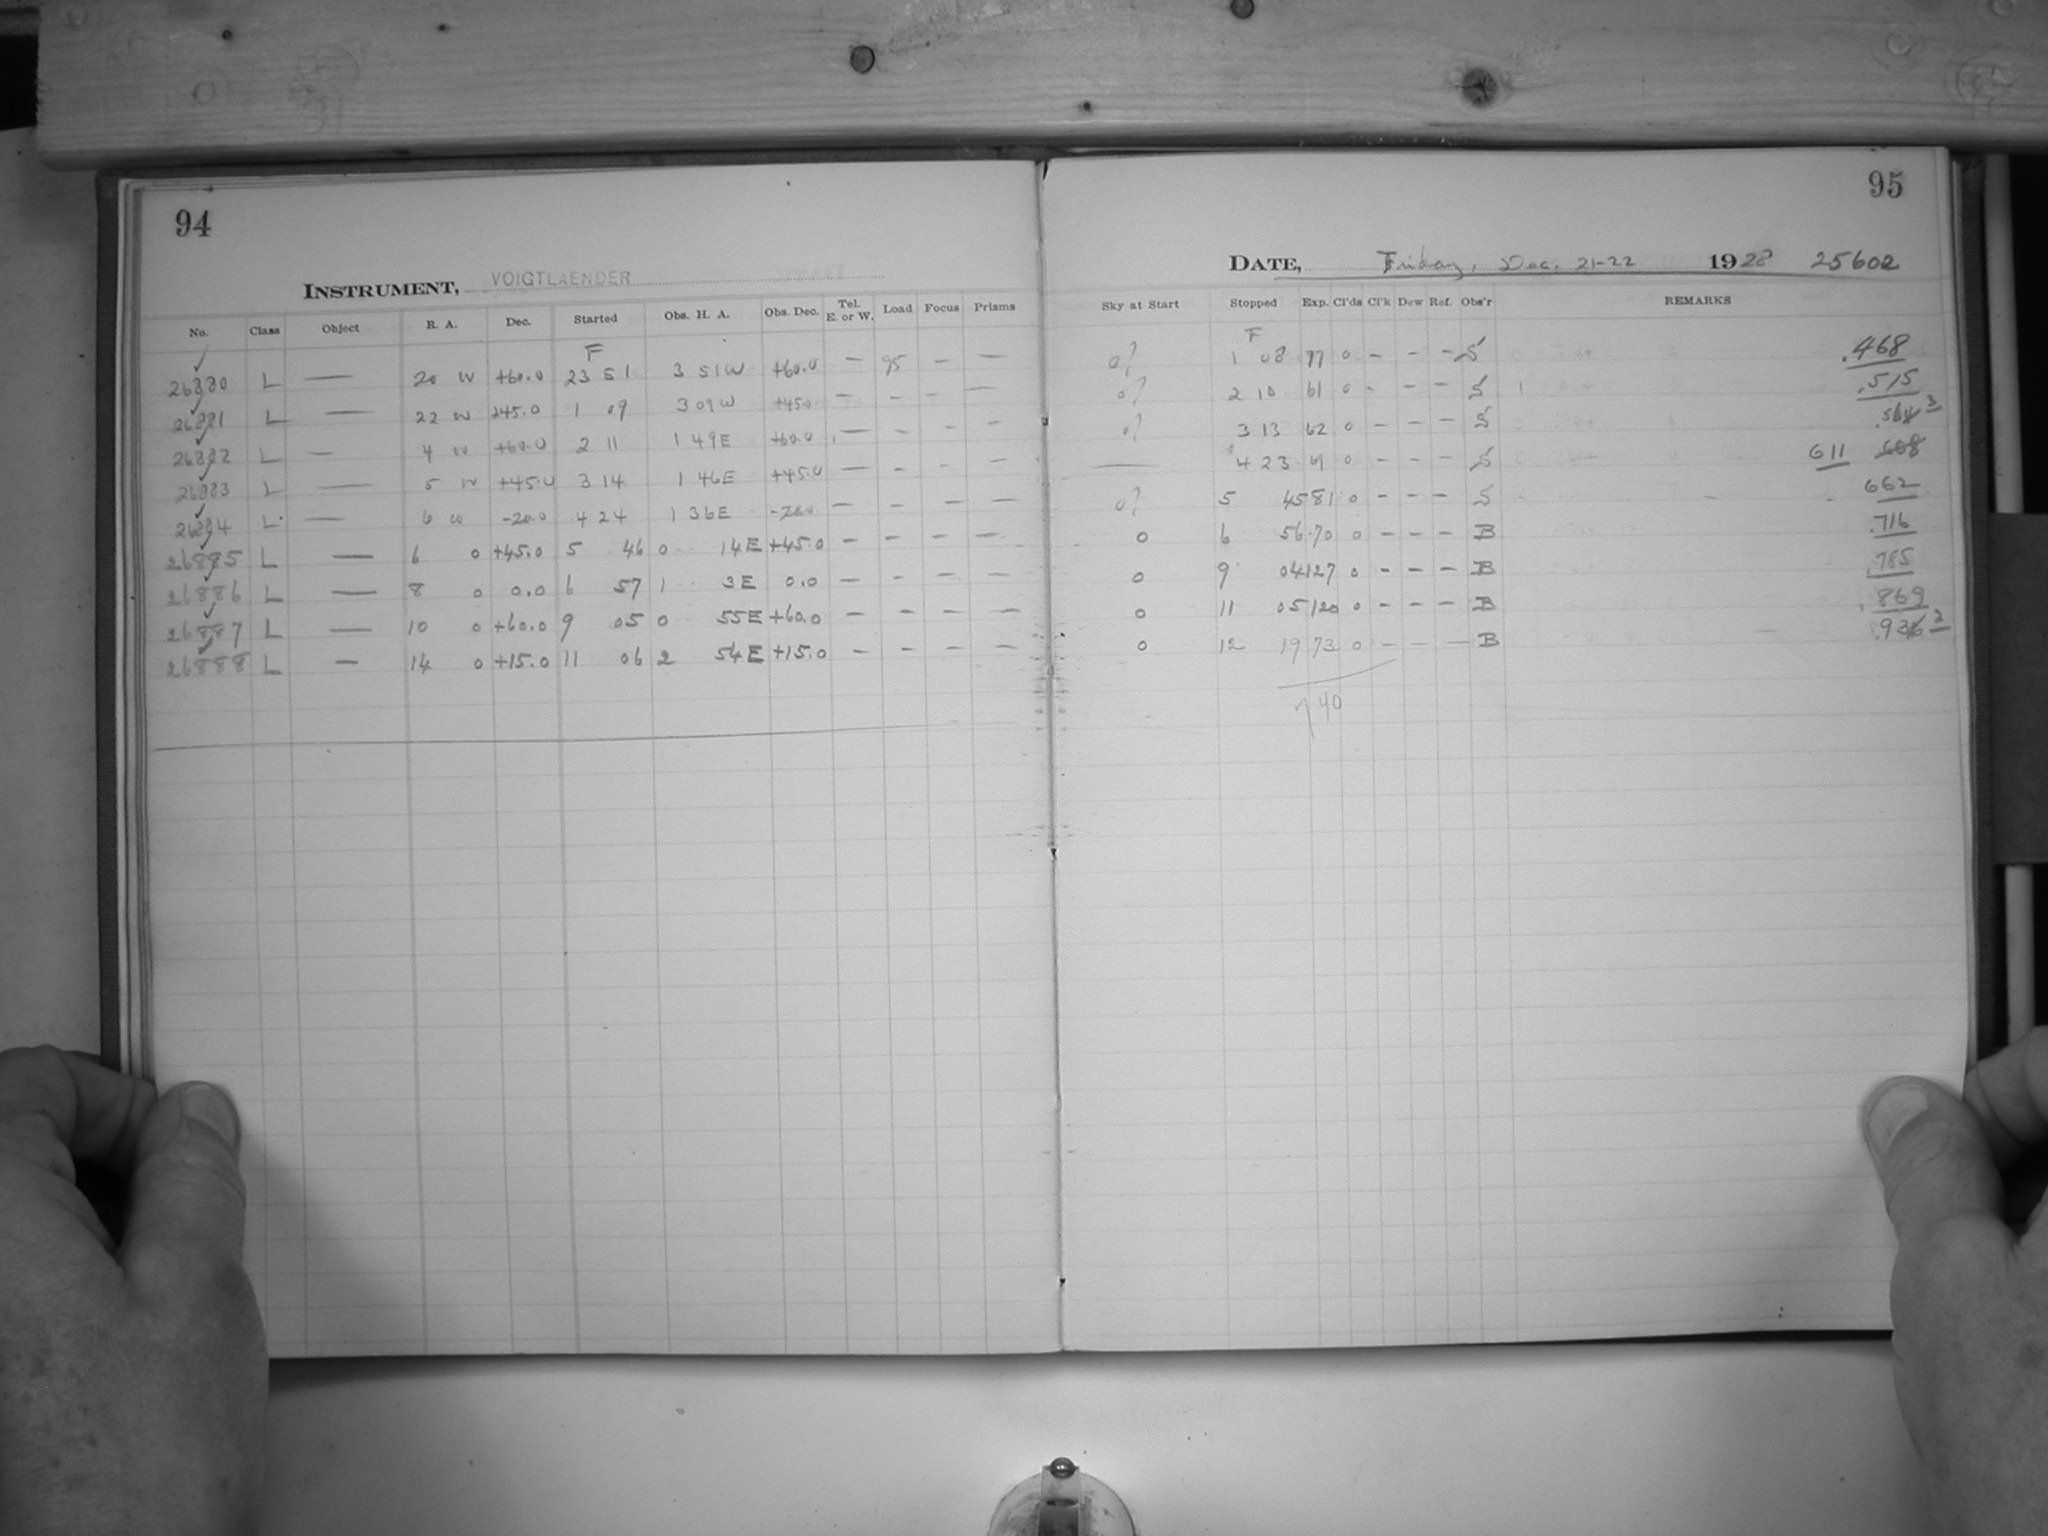 94
INSTRUMENT, VOIGTLAENDER
No. Class Object R. A. Dec. Started Obs. H. A. Obs. Dec. Tel. E. or W. Load Focus Prisms
F
26880 L — 20 W +60.0 23 51 3 51W +60.0 — 95 — —
26881 L — 22 W +45.0 1 09 3 09W +45.0 — — — —
26882 L — 4 W +60.0 2 11 1 49E +60.0 — — — —
26883 L — 5 W +45.0 3 14 1 46E +45.0 — — — —
26884 L — 6 W -20.0 4 24 1 36E -20.0 — — — —
26885 L — 6 0 +45.0 5 46 0 14E +45.0 — — — —
26886 L — 8 0 0.0 6 57 1 3E 0.0 — — — —
26887 L — 10 0 +60.0 9 05 0 55E +60.0 — — — —
26888 L — 14 0 +15.0 11 06 2 54E +15.0 — — — —
95
DATE, Friday, Dec. 21-22 1928 25602
Sky at Start Stopped Exp. Cl'ds Cl'k Dew Ref. Obs'r REMARKS
F
0? 1 08 77 0 — — — S .468
0? 2 10 61 0 — — — S .515
0? 3 13 62 0 — — — S .564 3
— 4 23 69 0 — — — S 611 608
0? 5 45 81 0 — — — S 662
0 6 56 70 0 — — — B .716
0 9 04 127 0 — — — B .785
0 11 05 120 0 — — — B .869
0 12 19 73 0 — — — B .936 2
740